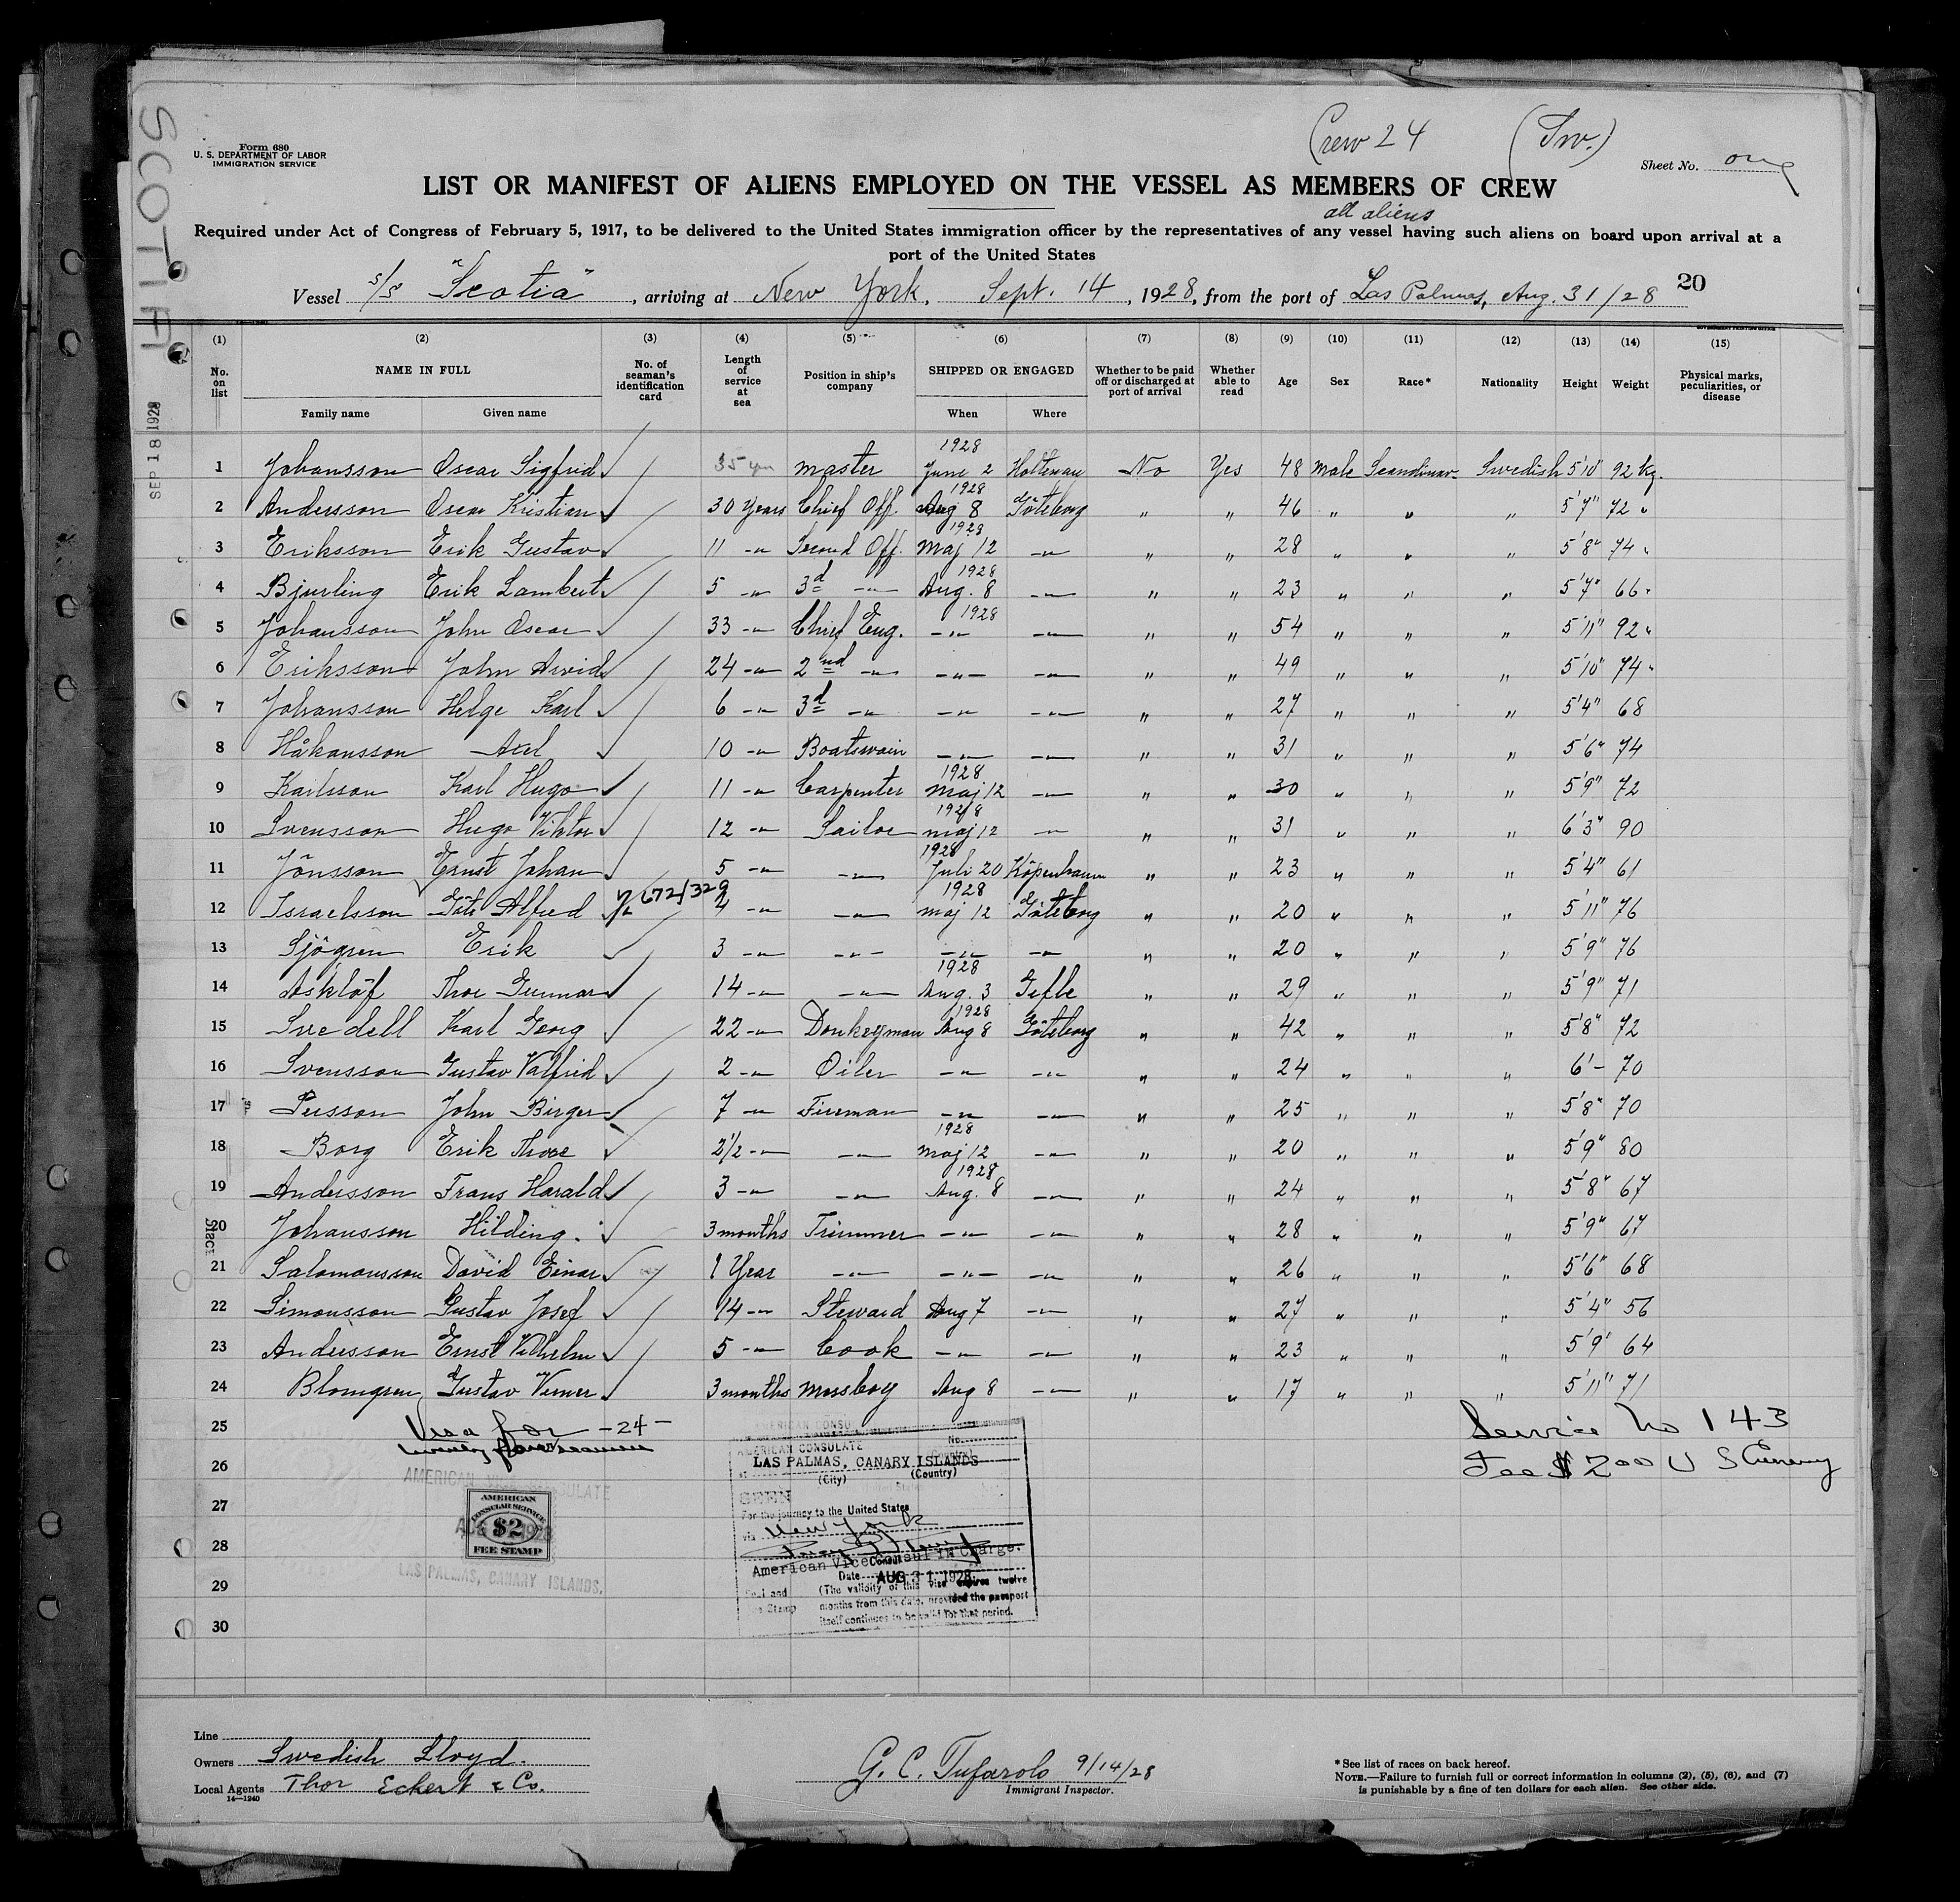 SCOTIA
SEP 18 1928
Form 680
U. S. DEPARTMENT OF LABOR
IMMIGRATION SERVICE
Crew 24 (Sw.)
Sheet No. one
LIST OR MANIFEST OF ALIENS EMPLOYED ON THE VESSEL AS MEMBERS OF CREW
all aliens
Required under Act of Congress of February 5, 1917, to be delivered to the United States immigration officer by the representatives of any vessel having such aliens on board upon arrival at a
port of the United States
Vessel s/s "Scotia", arriving at New York, Sept. 14, 1928, from the port of Las Palmas, Aug. 31/28 20
(1) (2) (3) (4) (5) (6) (7) (8) (9) (10) (11) (12) (13) (14) (15)
No. on list NAME IN FULL Family name Given name No. of seaman's identification card Length of service at sea Position in ship's company SHIPPED OR ENGAGED When Where Whether to be paid off or discharged at port of arrival Whether able to read Age Sex Race* Nationality Height Weight Physical marks, peculiarities, or disease
1 Johansson Oscar Sigfrid 35 yrs master 1928 June 2 Holtenau No Yes 48 male Scandinav. Swedish 5'10" 92 kg.
2 Andersson Oscar Kristian 30 Years Chief Off. 1928 Aug 8 Göteborg " " 46 " " " 5'7" 72 "
3 Eriksson Erik Gustav 11 -"- Second Off. 1928 Maj 12 -"- " " 28 " " " 5'8" 74 "
4 Bjurling Erik Lambert 5 -"- 3d -"- 1928 Aug. 8 -"- " " 23 " " " 5'7" 66 "
5 Johansson John Oscar 33 -"- Chief Eng. 1928 -"- -"- " " 54 " " " 5'11" 92 "
6 Eriksson John Arvid 24 -"- 2nd -"- -"- -"- " " 49 " " " 5'10" 74 "
7 Johansson Helge Karl 6 -"- 3d -"- -"- -"- " " 27 " " " 5'4" 68
8 Håkansson Axel 10 -"- Boatswain -"- -"- " " 31 " " " 5'6" 74
9 Karlsson Karl Hugo 11 -"- Carpenter 1928 Maj 12 -"- " " 30 " " " 5'9" 72
10 Svensson Hugo Viktor 12 -"- Sailor 1928 maj 12 -"- " " 31 " " " 6'3" 90
11 Jönsson Ernst Johan 5 -"- -"- 1928 Juli 20 Köpenhamn " " 23 " " " 5'4" 61
12 Israelsson Göte Alfred 672/329 4 -"- -"- 1928 maj 12 Göteborg " " 20 " " " 5'11" 76
13 Sjögren Erik 3 -"- -"- -"- -"- " " 20 " " " 5'9" 76
14 Asklöf Thor Gunnar 14 -"- -"- 1928 Aug. 3 Gefle " " 29 " " " 5'9" 71
15 Svedell Karl Georg 22 -"- Donkeyman 1928 Aug 8 Göteborg " " 42 " " " 5'8" 72
16 Svensson Gustav Valfrid 2 -"- Oiler -"- -"- " " 24 " " " 6'- 70
17 Persson John Birger 7 -"- Fireman -"- -"- " " 25 " " " 5'8" 70
18 Borg Erik Thore 2½ -"- -"- 1928 Maj 12 -"- " " 20 " " " 5'9" 80
19 Andersson Frans Harald 3 -"- -"- 1928 Aug. 8 -"- " " 24 " " " 5'8" 67
20 Johansson Hilding. 3 months Trimmer -"- -"- " " 28 " " " 5'9" 67
21 Salomonsson David Einar 1 Year -"- -"- -"- " " 26 " " " 5'6" 68
22 Simonsson Gustav Josef 14 -"- Steward Aug 7 -"- " " 27 " " " 5'4" 56
23 Andersson Ernst Vilhelm 5 -"- Cook -"- -"- " " 23 " " " 5'9" 64
24 Blomgren Gustav Verner 3 months messboy Aug 8 -"- " " 17 " " " 5'11" 71
25 Visa for -24- Service No 143
26 Fee $ 2 00 U S Currency
27
28
29
30
AMERICAN CONSULATE
LAS PALMAS, CANARY ISLANDS
(City) (Country)
SEEN
For the journey to the United States
via New York
American Vice Consul in Charge.
Date AUG 31 1928
(The validity of this visa expires twelve
months from this date, provided the passport
itself continues to be valid for that period.
AMERICAN VICE CONSULATE
AMERICAN
CONSULAR SERVICE
$2
FEE STAMP
LAS PALMAS, CANARY ISLANDS.
Line
Owners Swedish Lloyd.
Local Agents Thor Eckert & Co.
14—1240
G. C. Tufarolo 9/14/28
Immigrant Inspector.
* See list of races on back hereof.
NOTE.—Failure to furnish full or correct information in columns (2), (5), (6), and (7)
is punishable by a fine of ten dollars for each alien. See other side.